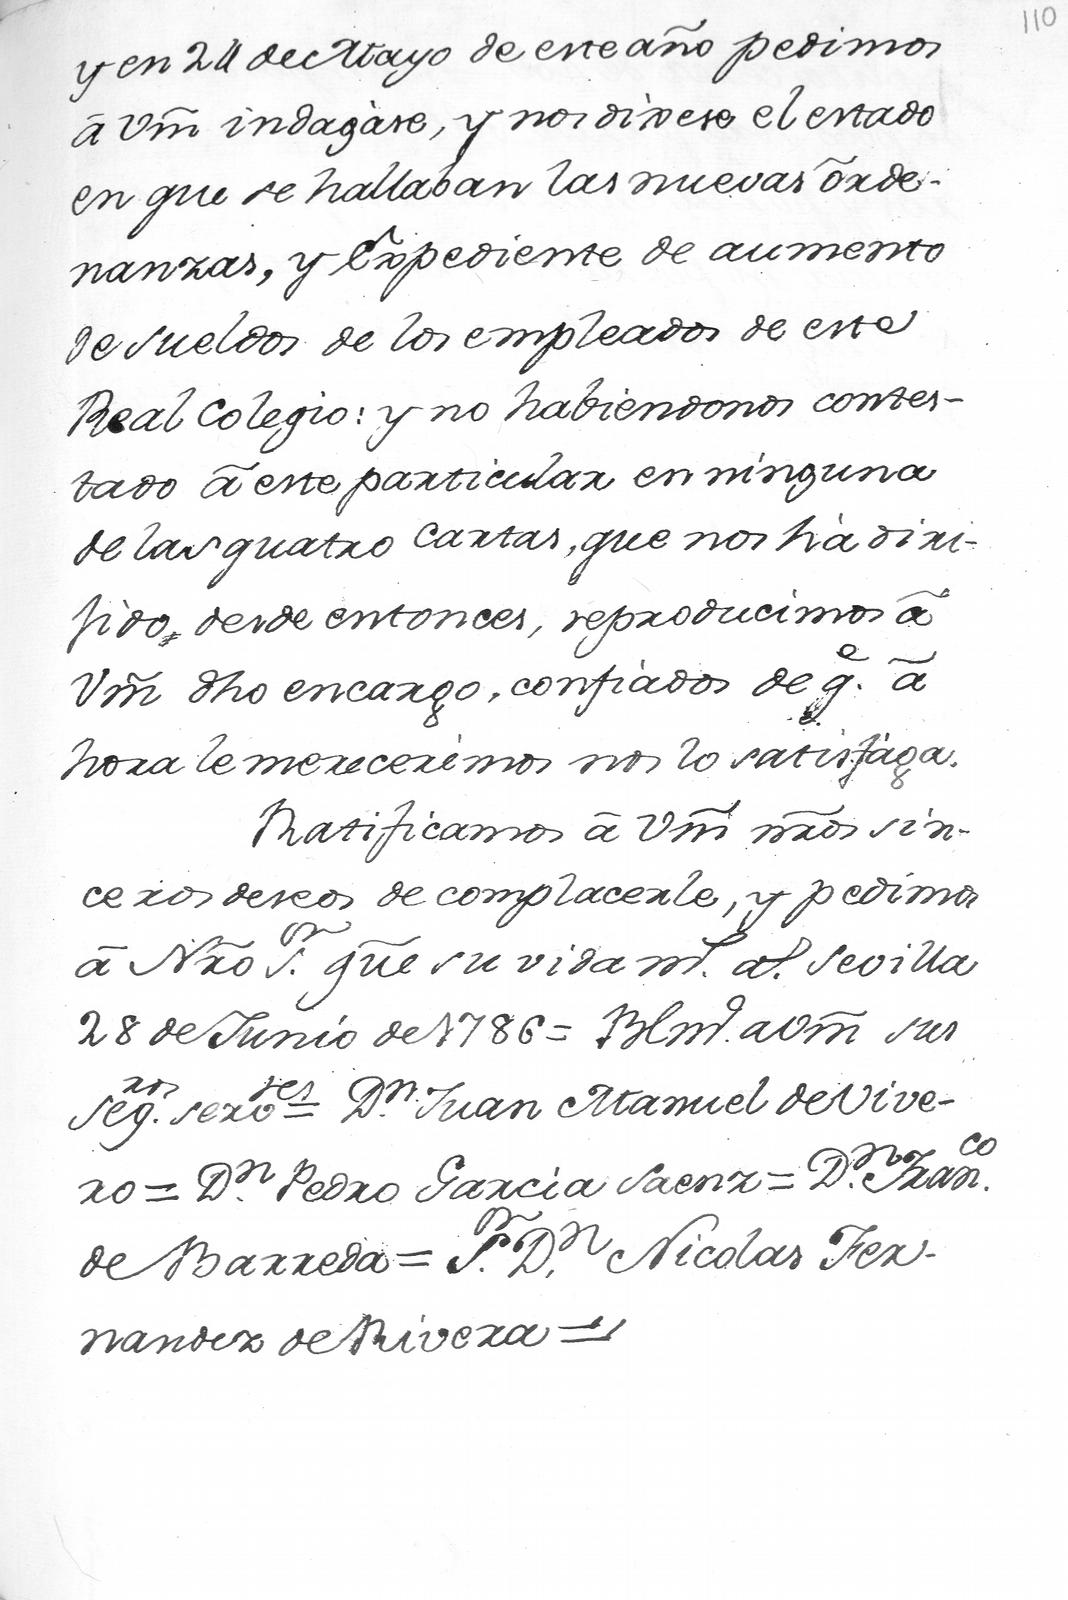 110
y en 24 de Mayo de este año pedimos
ā Vm̃ indagàse, y nos dixese el estado
en que se hallaban las nuevas õrde-
nanzas, y Expediente de aumento
de sueldos de los empleados de este
Real Colegio: y no habiendonos contes-
tado ā este particular en ninguna
de las quatro Cartas, que nos hà diri-
jido, desde entonces, reproducimos ā
Vm̃ dho encargo, confiados de q.e ā
hora le merecerémos nos lo satisfàga.
Ratificamos ā Vm̃ ñros sin-
ceros deseos de complacerle, y pedimos
ā Ñro S.or gũe su vida m.s a.s Sevilla
28 de Junio de 1786= Blm.o a Vm̃ sus
seg.ros serv.res= D.n Juan Manuel de Vive-
ro= D.n Pedro Garcia Saenz= D.n Fran.co
de Barreda= S.r D.n Nicolas Fer-
nandez de Rivera=